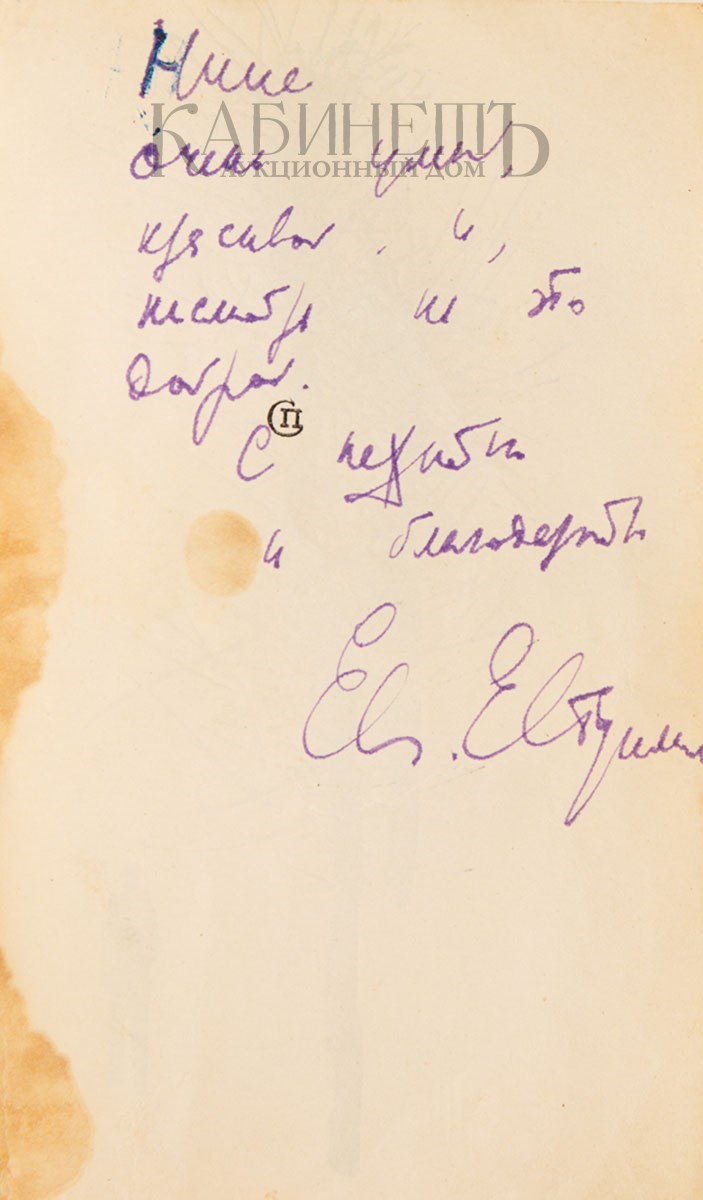 Нине
КАБИНЕТЪ
АУКЦИОННЫЙ ДОМ
очень умной,
красивой, и,
несмотря на это
доброй.
СП
С нежностью
и благодарностью
Евг. Евтушенко